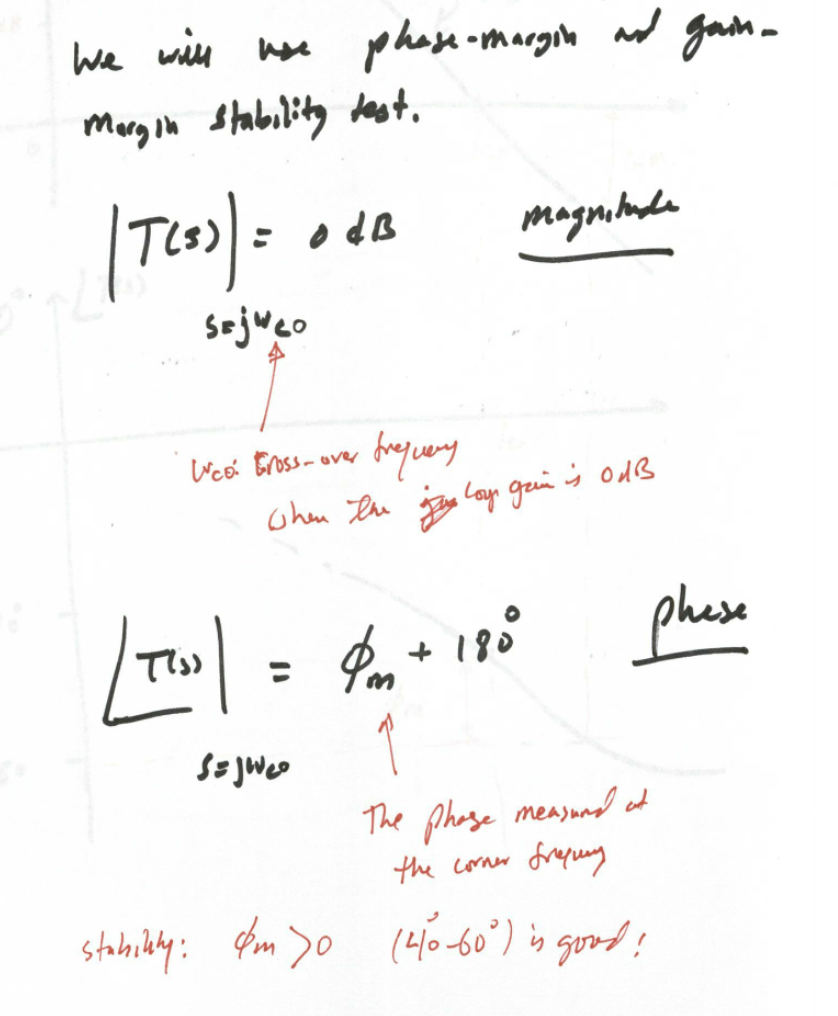 We will use phase-margin and gain-
margin stability test.
|T(s)| = 0 dB
magnitude
s=jωco
ωco: Cross-over frequency
when the loop gain is 0dB
∠T(s)| = ϕm + 180°
phase
s=jωco
The phase measured at
the corner frequency
stability: ϕm >0 (40°-60°) is good!